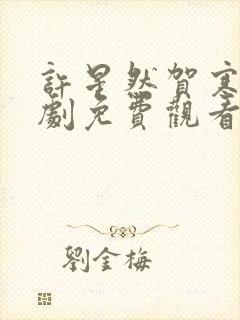 許星然賀寒
劇免費觀看
劉金梅